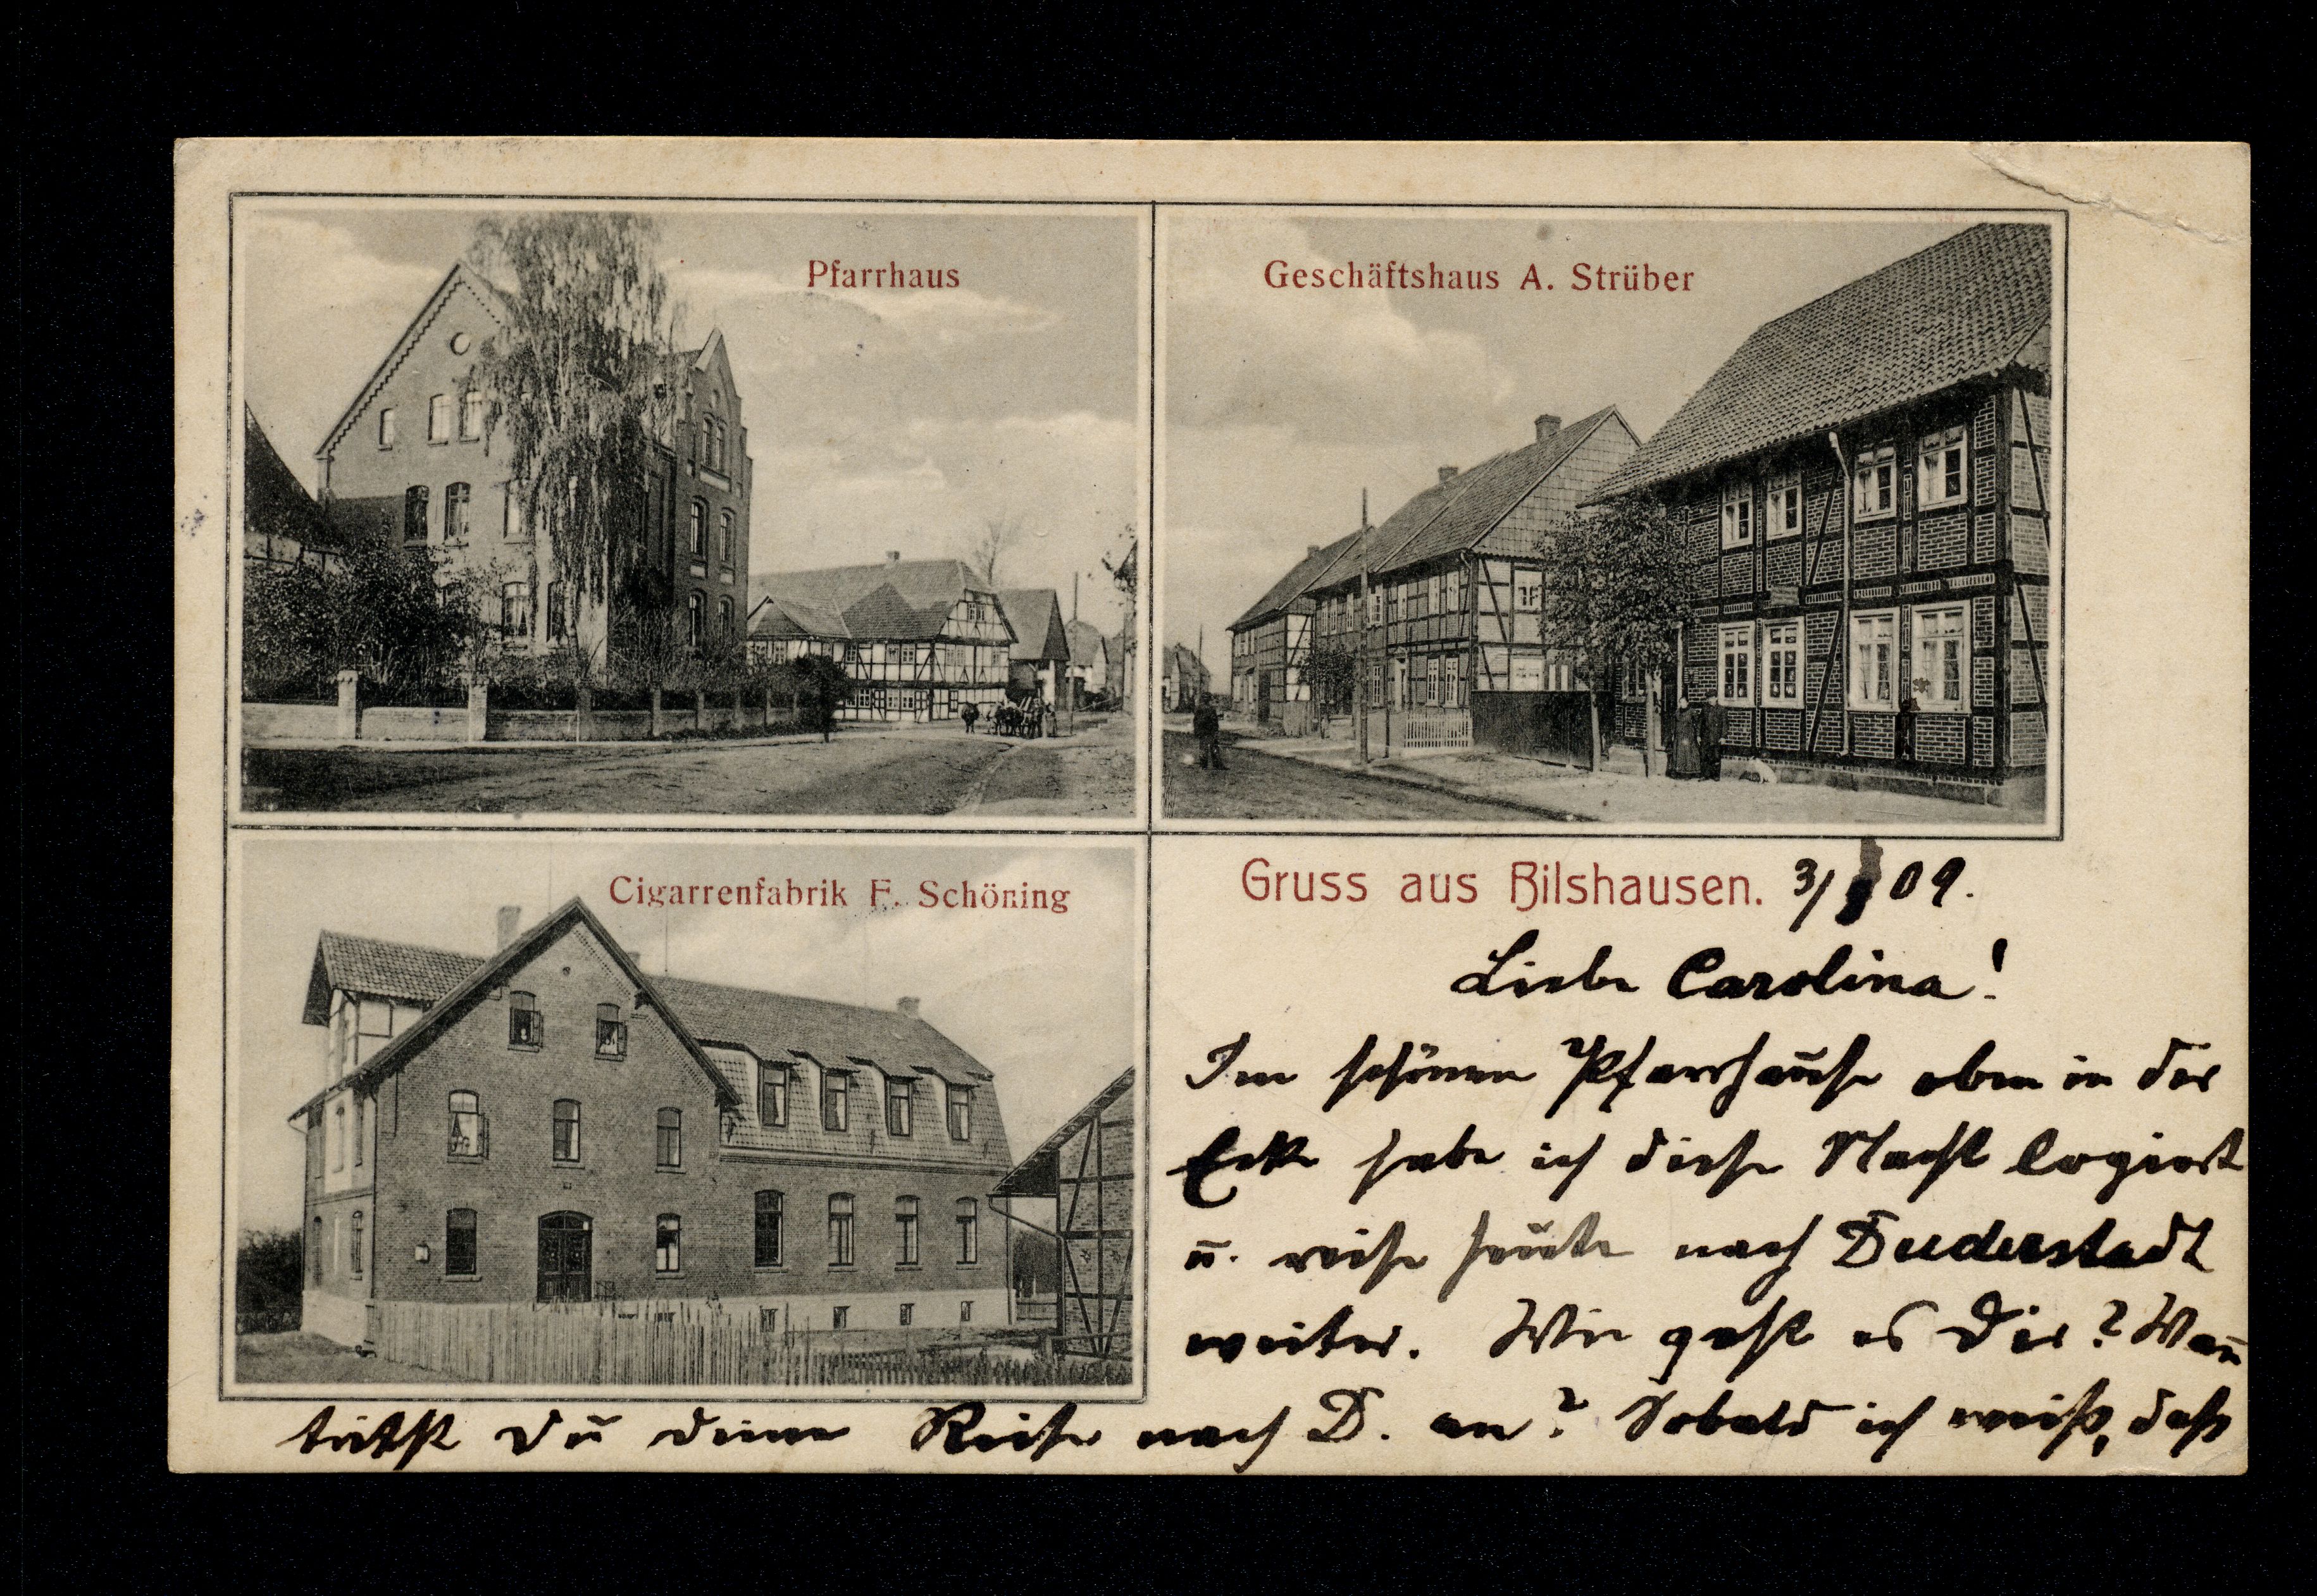 Pfarrhaus
Geschäftshaus A. Strüber
Cigarrenfabrik F. Schöning
Gruss aus Bilshausen. 3/ 09.
Liebe Carolina!
Im schönen Pfarrhause oben in der
Ecke habe ich diese Nacht logiert
u. reise heute nach Duderstadt
weiter. Wie geht es Dir? Wan̄
trittst Du deine Reise nach D. an? Sobald ich weiß, daß